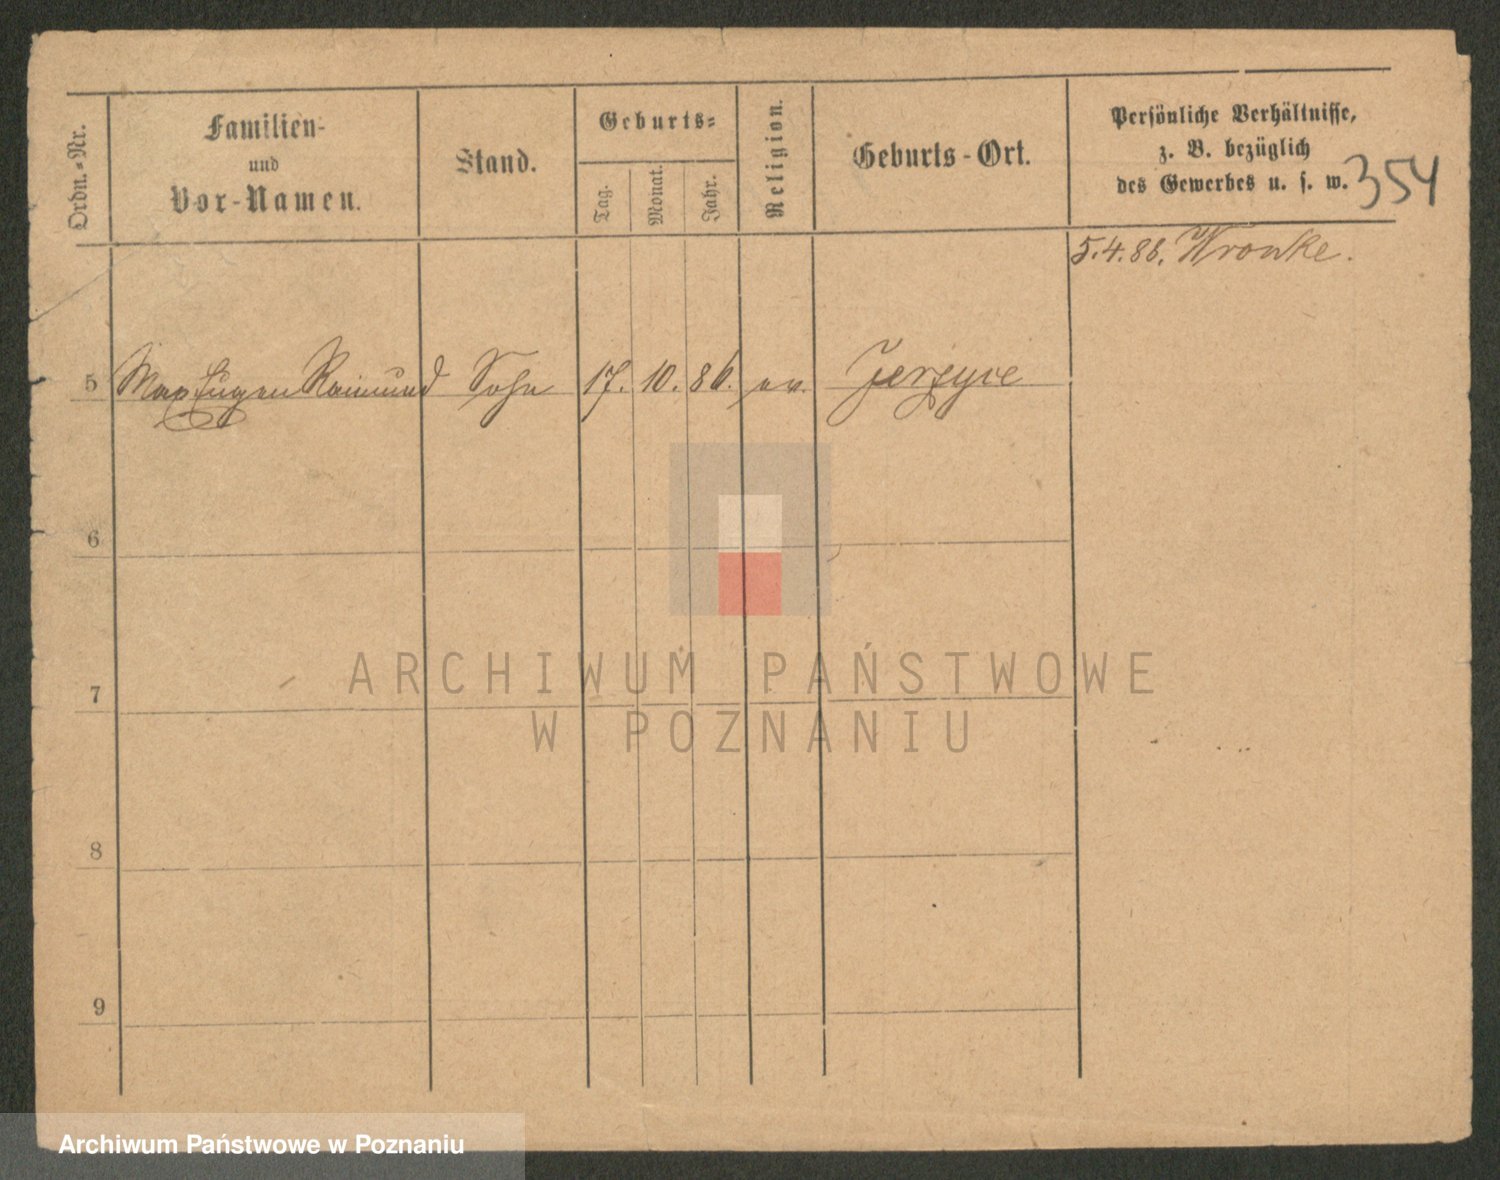 Ordn.-Nr.
Familien-
und
Vor-Namen.
Stand.
Geburts-
Tag.
Monat.
Jahr.
Religion.
Geburts-Ort.
Persönliche Verhältnisse,
z. B. bezüglich
des Gewerbes u. s. w.
354
5.4.88. Wronke.
5 Max Eugen Raimund Sohn 17. 10. 86. ev. Jerzyce
6
7
8
9
ARCHIWUM PAŃSTWOWE
W POZNANIU
Archiwum Państwowe w Poznaniu